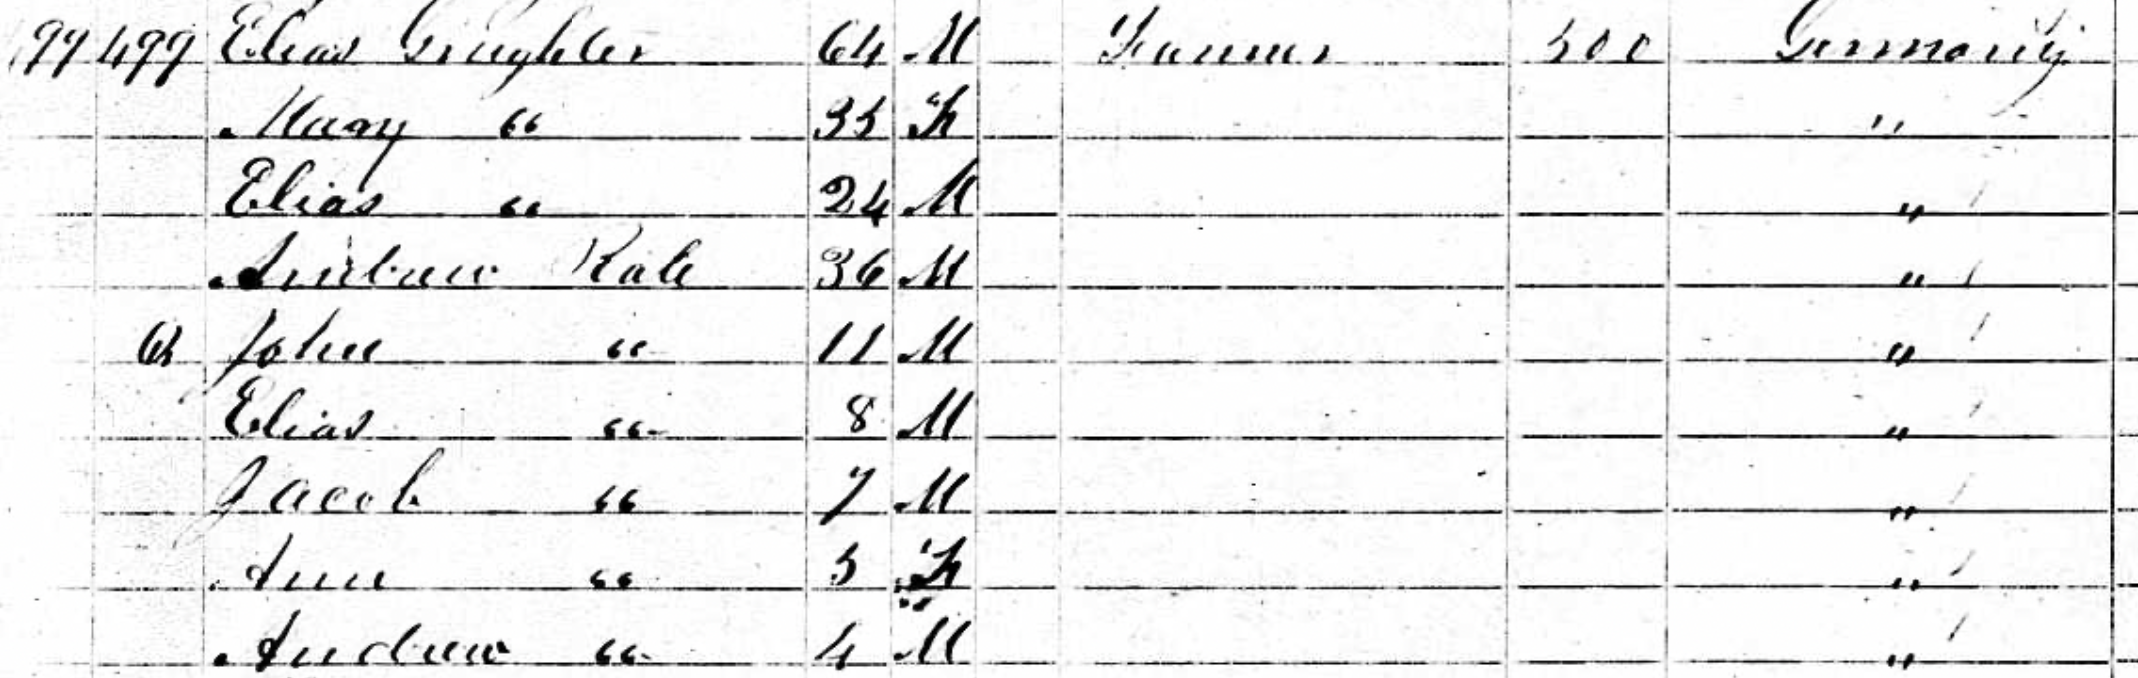 499 499 Elias Grughler 64 M Farmer 500 Germany
Mary " 35 F "
Elias " 24 M "
Andrew Kale 36 M "
John " 11 M "
Elias " 8 M "
Jacob " 7 M "
Ann " 5 F "
Andrew " 4 M "